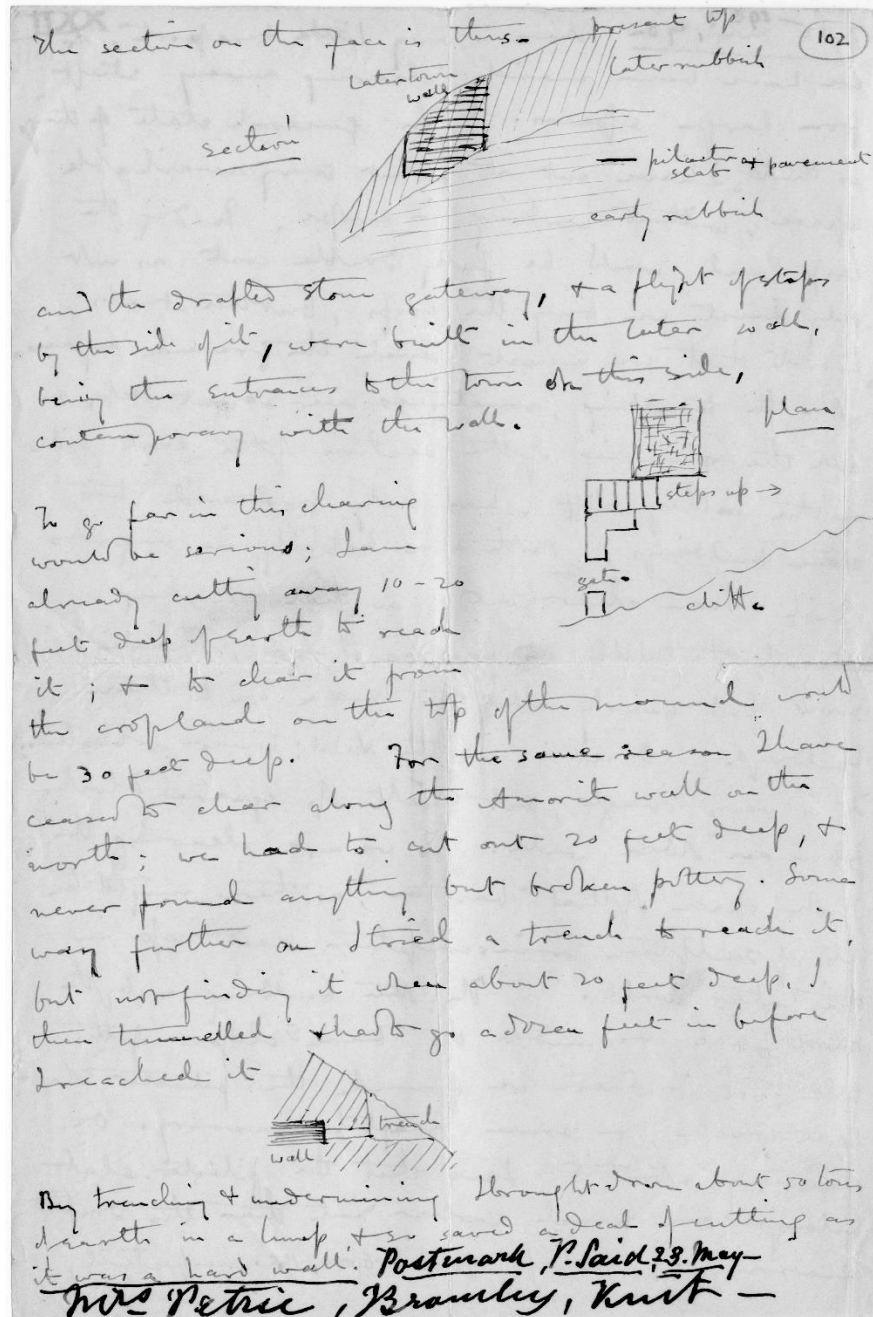 The section on the face is thus.
present top
102
later rubbish
Later town
wall
section
pilaster
slab & pavement
early rubbish
and the drafted stone gateway, & a flight of steps
by the side of it, were built in the later wall,
being the entrances to the town on this side,
contemporary with the wall.
plan
steps up →
gate.
cliff.
To go far in this clearing
would be serious; I am
already cutting away 10-20
feet deep of earth to reach
it; & to clear it from
the cropland on the top of the mound would
be 30 feet deep. For the same reason I have
ceased to clear along the Amorite wall on the
north; we had to cut out 20 feet deep, &
never found anything but broken pottery. Some
way further on I tried a trench to reach it,
but not finding it when about 20 feet deep, I
then tunnelled & had to go a dozen feet in before
I reached it
trench
wall
By trenching & undermining I brought down about 50 tons
of earth in a lump & so saved a deal of cutting as
it was a hard wall. Postmark, P. Said, 23. May—
Mrs Petrie, Bromley, Kent —